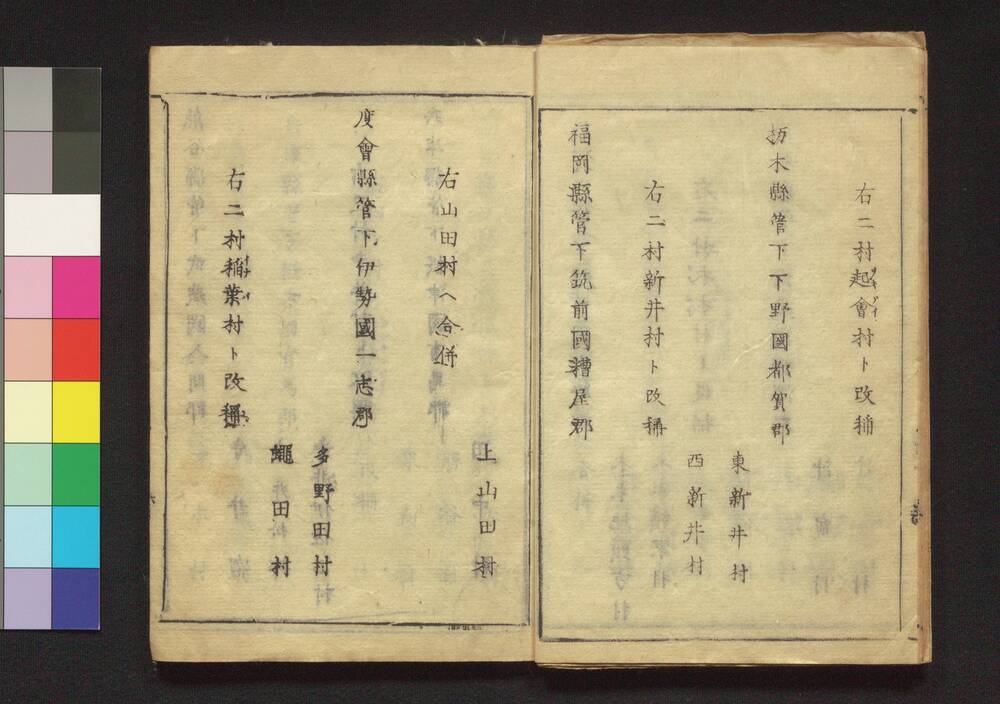 右二村起會村ト改稱
栃木縣管下下野國都賀郡
東新井村
西新井村
右二村新井村ト改稱
福岡縣管下筑前國糟屋郡
上山田村
右山田村ヘ合併
度會縣管下伊勢國一志郡
多野田村
蠅田村
右二村稲葉村ト改稱